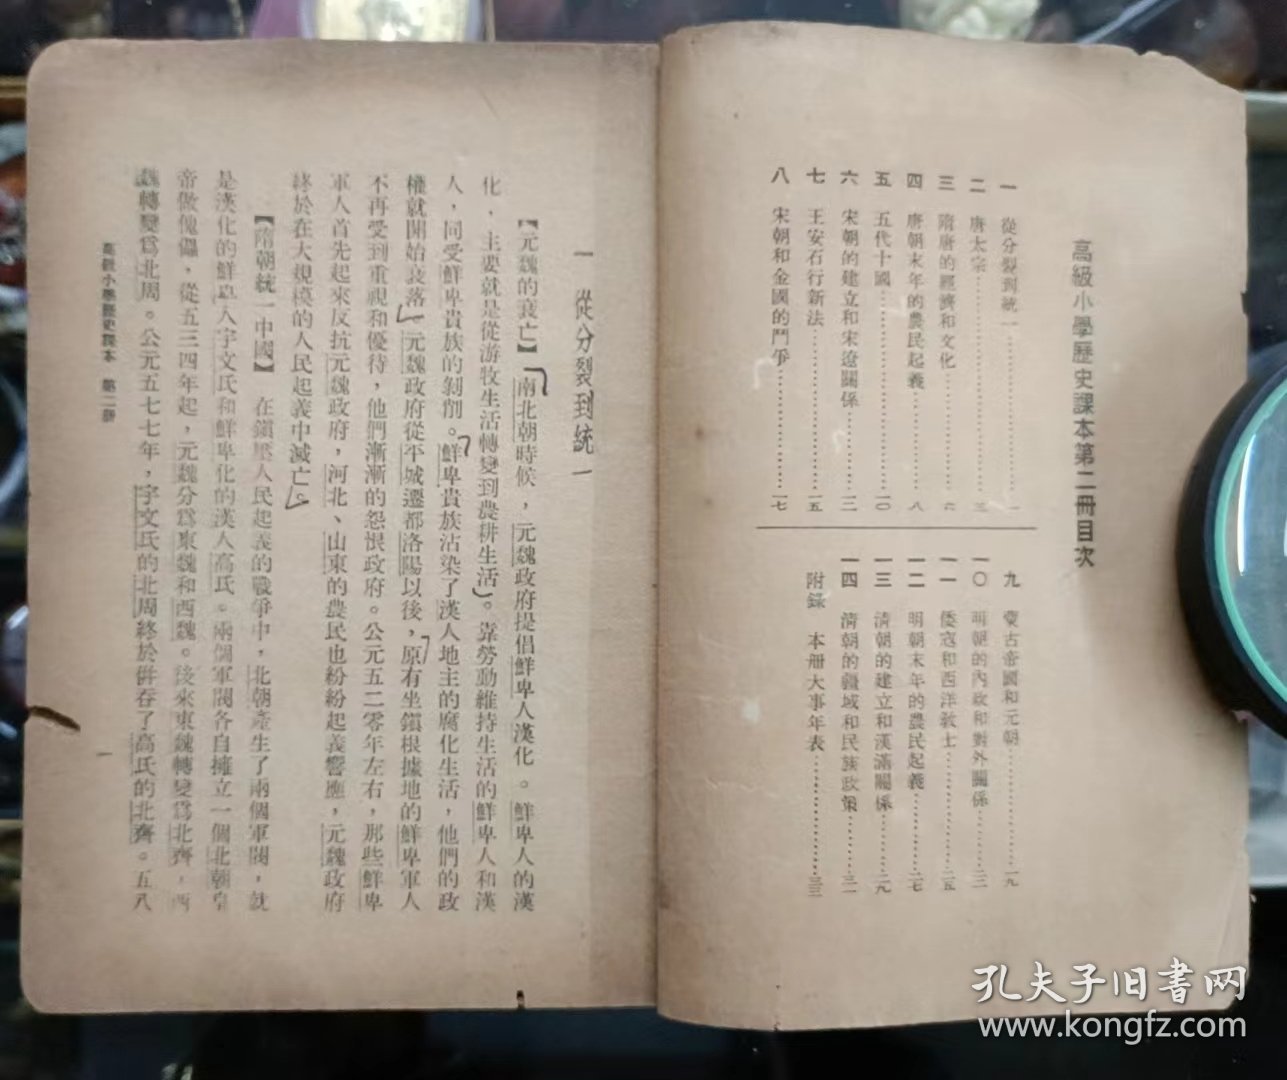 高級小學歷史課本第二冊目次
一 從分裂到統一……一
二 唐太宗……三
三 隋唐的經濟和文化……六
四 唐朝末年的農民起義……八
五 五代十國……一〇
六 宋朝的建立和宋遼關係……一二
七 王安石行新法……一五
八 宋朝和金國的鬥爭……一七
九 蒙古帝國和元朝……一九
一〇 明朝的內政和對外關係……二二
一一 倭寇和西洋教士……二五
一二 明朝末年的農民起義……二七
一三 清朝的建立和漢滿關係……二九
一四 清朝的疆域和民族政策……三一
附錄 本冊大事年表……三三
一 從分裂到統一
【元魏的衰亡】 南北朝時候，元魏政府提倡鮮卑人漢化。鮮卑人的漢
化，主要就是從游牧生活轉變到農耕生活。靠勞動維持生活的鮮卑人和漢
人，同受鮮卑貴族的剝削。鮮卑貴族沾染了漢人地主的腐化生活，他們的政
權就開始衰落。元魏政府從平城遷都洛陽以後，原有坐鎮根據地的鮮卑軍人
不再受到重視和優待，他們漸漸的怨恨政府。公元五二零年左右，那些鮮卑
軍人首先起來反抗元魏政府，河北、山東的農民也紛紛起義響應，元魏政府
終於在大規模的人民起義中滅亡。
【隋朝統一中國】 在鎮壓人民起義的戰爭中，北朝產生了兩個軍閥，就
是漢化的鮮卑人宇文氏和鮮卑化的漢人高氏。兩個軍閥各自擁立一個北朝皇
帝做傀儡，從五三四年起，元魏分爲東魏和西魏。後來東魏轉變爲北齊，西
魏轉變爲北周。公元五七七年，宇文氏的北周終於併吞了高氏的北齊。五八
高級小學歷史課本 第二冊
一
孔夫子旧书网
www.kongfz.com